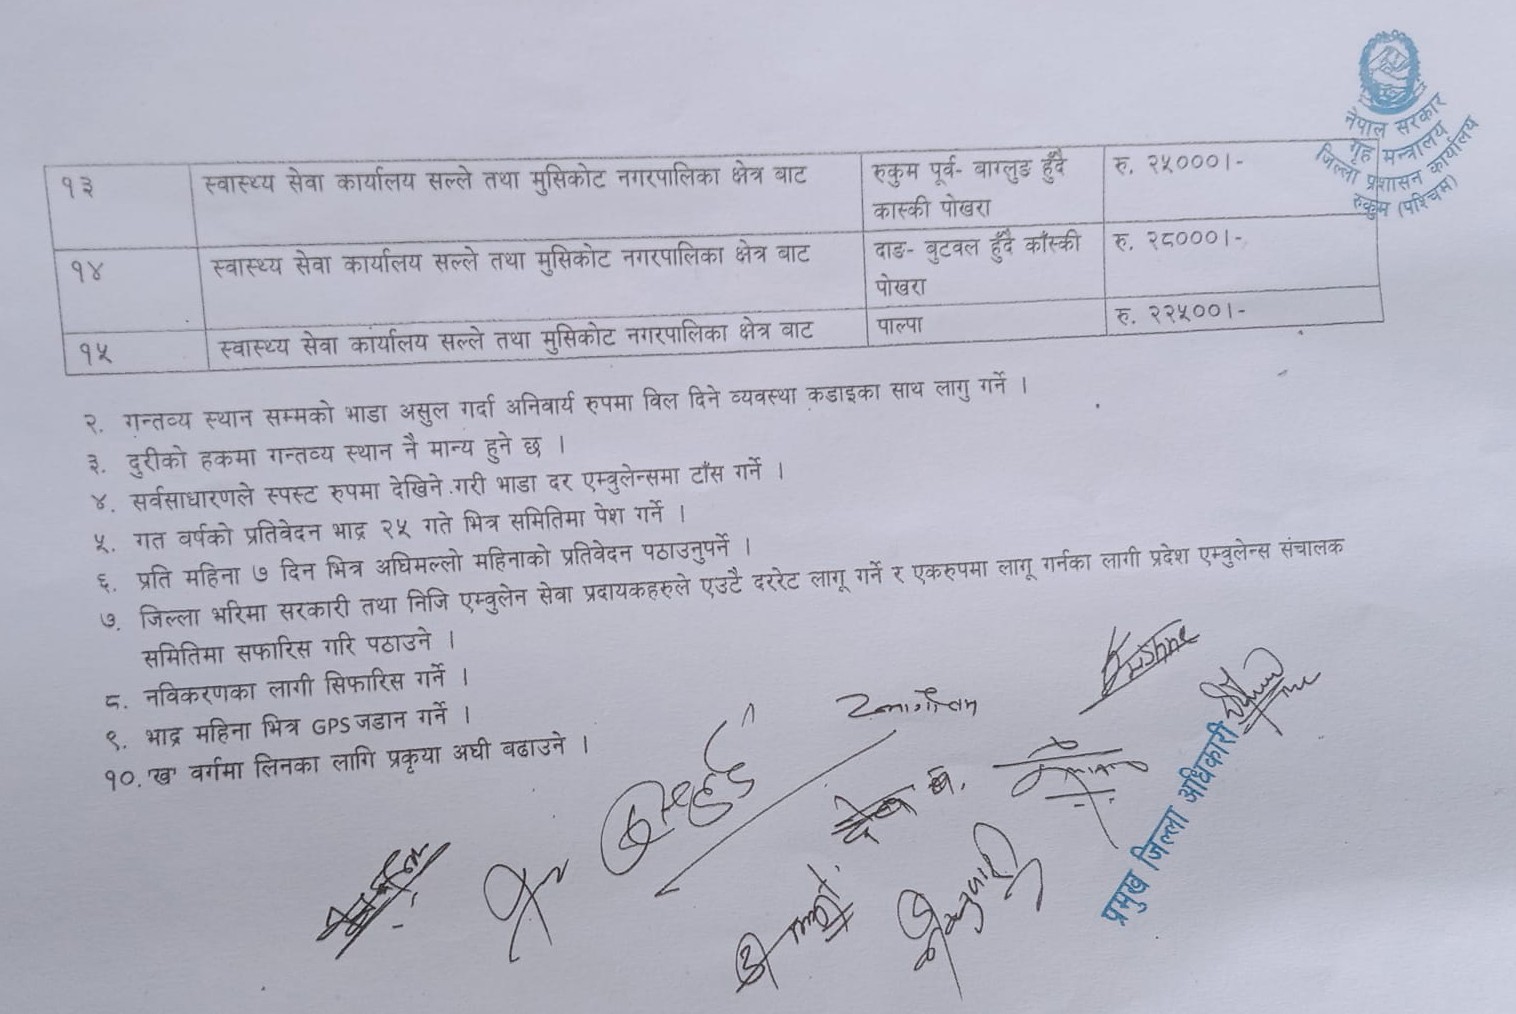 नेपाल सरकार
गृह मन्त्रालय
जिल्ला प्रशासन कार्यालय
रुकुम (पश्चिम)
१३ स्वास्थ्य सेवा कार्यालय सल्ले तथा मुसिकोट नगरपालिका क्षेत्र बाट रुकुम पूर्व- बाग्लुङ हुँदै रु. २५०००।-
कास्की पोखरा
१४ स्वास्थ्य सेवा कार्यालय सल्ले तथा मुसिकोट नगरपालिका क्षेत्र बाट दाङ- बुटवल हुँदै काँस्की रु. २८०००।-
पोखरा
१५ स्वास्थ्य सेवा कार्यालय सल्ले तथा मुसिकोट नगरपालिका क्षेत्र बाट पाल्पा रु. २२५००।-
२. गन्तव्य स्थान सम्मको भाडा असुल गर्दा अनिवार्य रुपमा विल दिने व्यवस्था कडाइका साथ लागु गर्ने ।
३. दुरीको हकमा गन्तव्य स्थान नै मान्य हुने छ ।
४. सर्वसाधारणले स्पस्ट रुपमा देखिने गरी भाडा दर एम्वुलेन्समा टाँस गर्ने ।
५. गत वर्षको प्रतिवेदन भाद्र २५ गते भित्र समितिमा पेश गर्ने ।
६. प्रति महिना ७ दिन भित्र अघिमल्लो महिनाको प्रतिवेदन पठाउनुपर्ने ।
७. जिल्ला भरिमा सरकारी तथा निजि एम्वुलेन सेवा प्रदायकहरुले एउटै दररेट लागू गर्ने र एकरुपमा लागू गर्नका लागी प्रदेश एम्वुलेन्स संचालक
समितिमा सफारिस गरि पठाउने ।
८. नविकरणका लागी सिफारिस गर्ने ।
९. भाद्र महिना भित्र GPS जडान गर्ने ।
१०. 'ख' वर्गमा लिनका लागि प्रकृया अघी बढाउने ।
प्रमुख जिल्ला अधिकारी